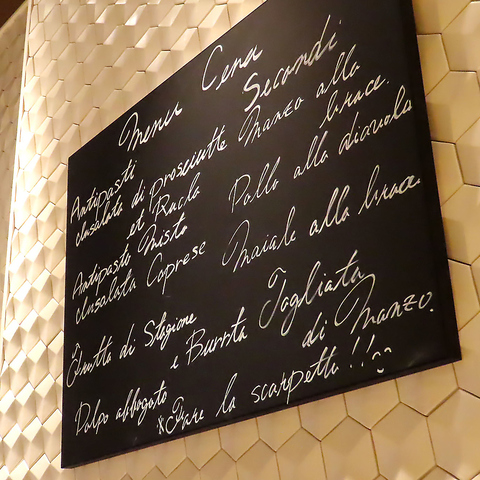 Menu Cena
Antipasti
Insalata di prosciutto
et Rucla
Antipasti Misto
Insalata Caprese
Frutta di Stagione
e Burrata
Polpo abbogato
Secondi
Manzo alla
brace.
Pollo alla diavola
Maiale alla brace
Tagliata
di Manzo.
*Fare la scarpetta!!